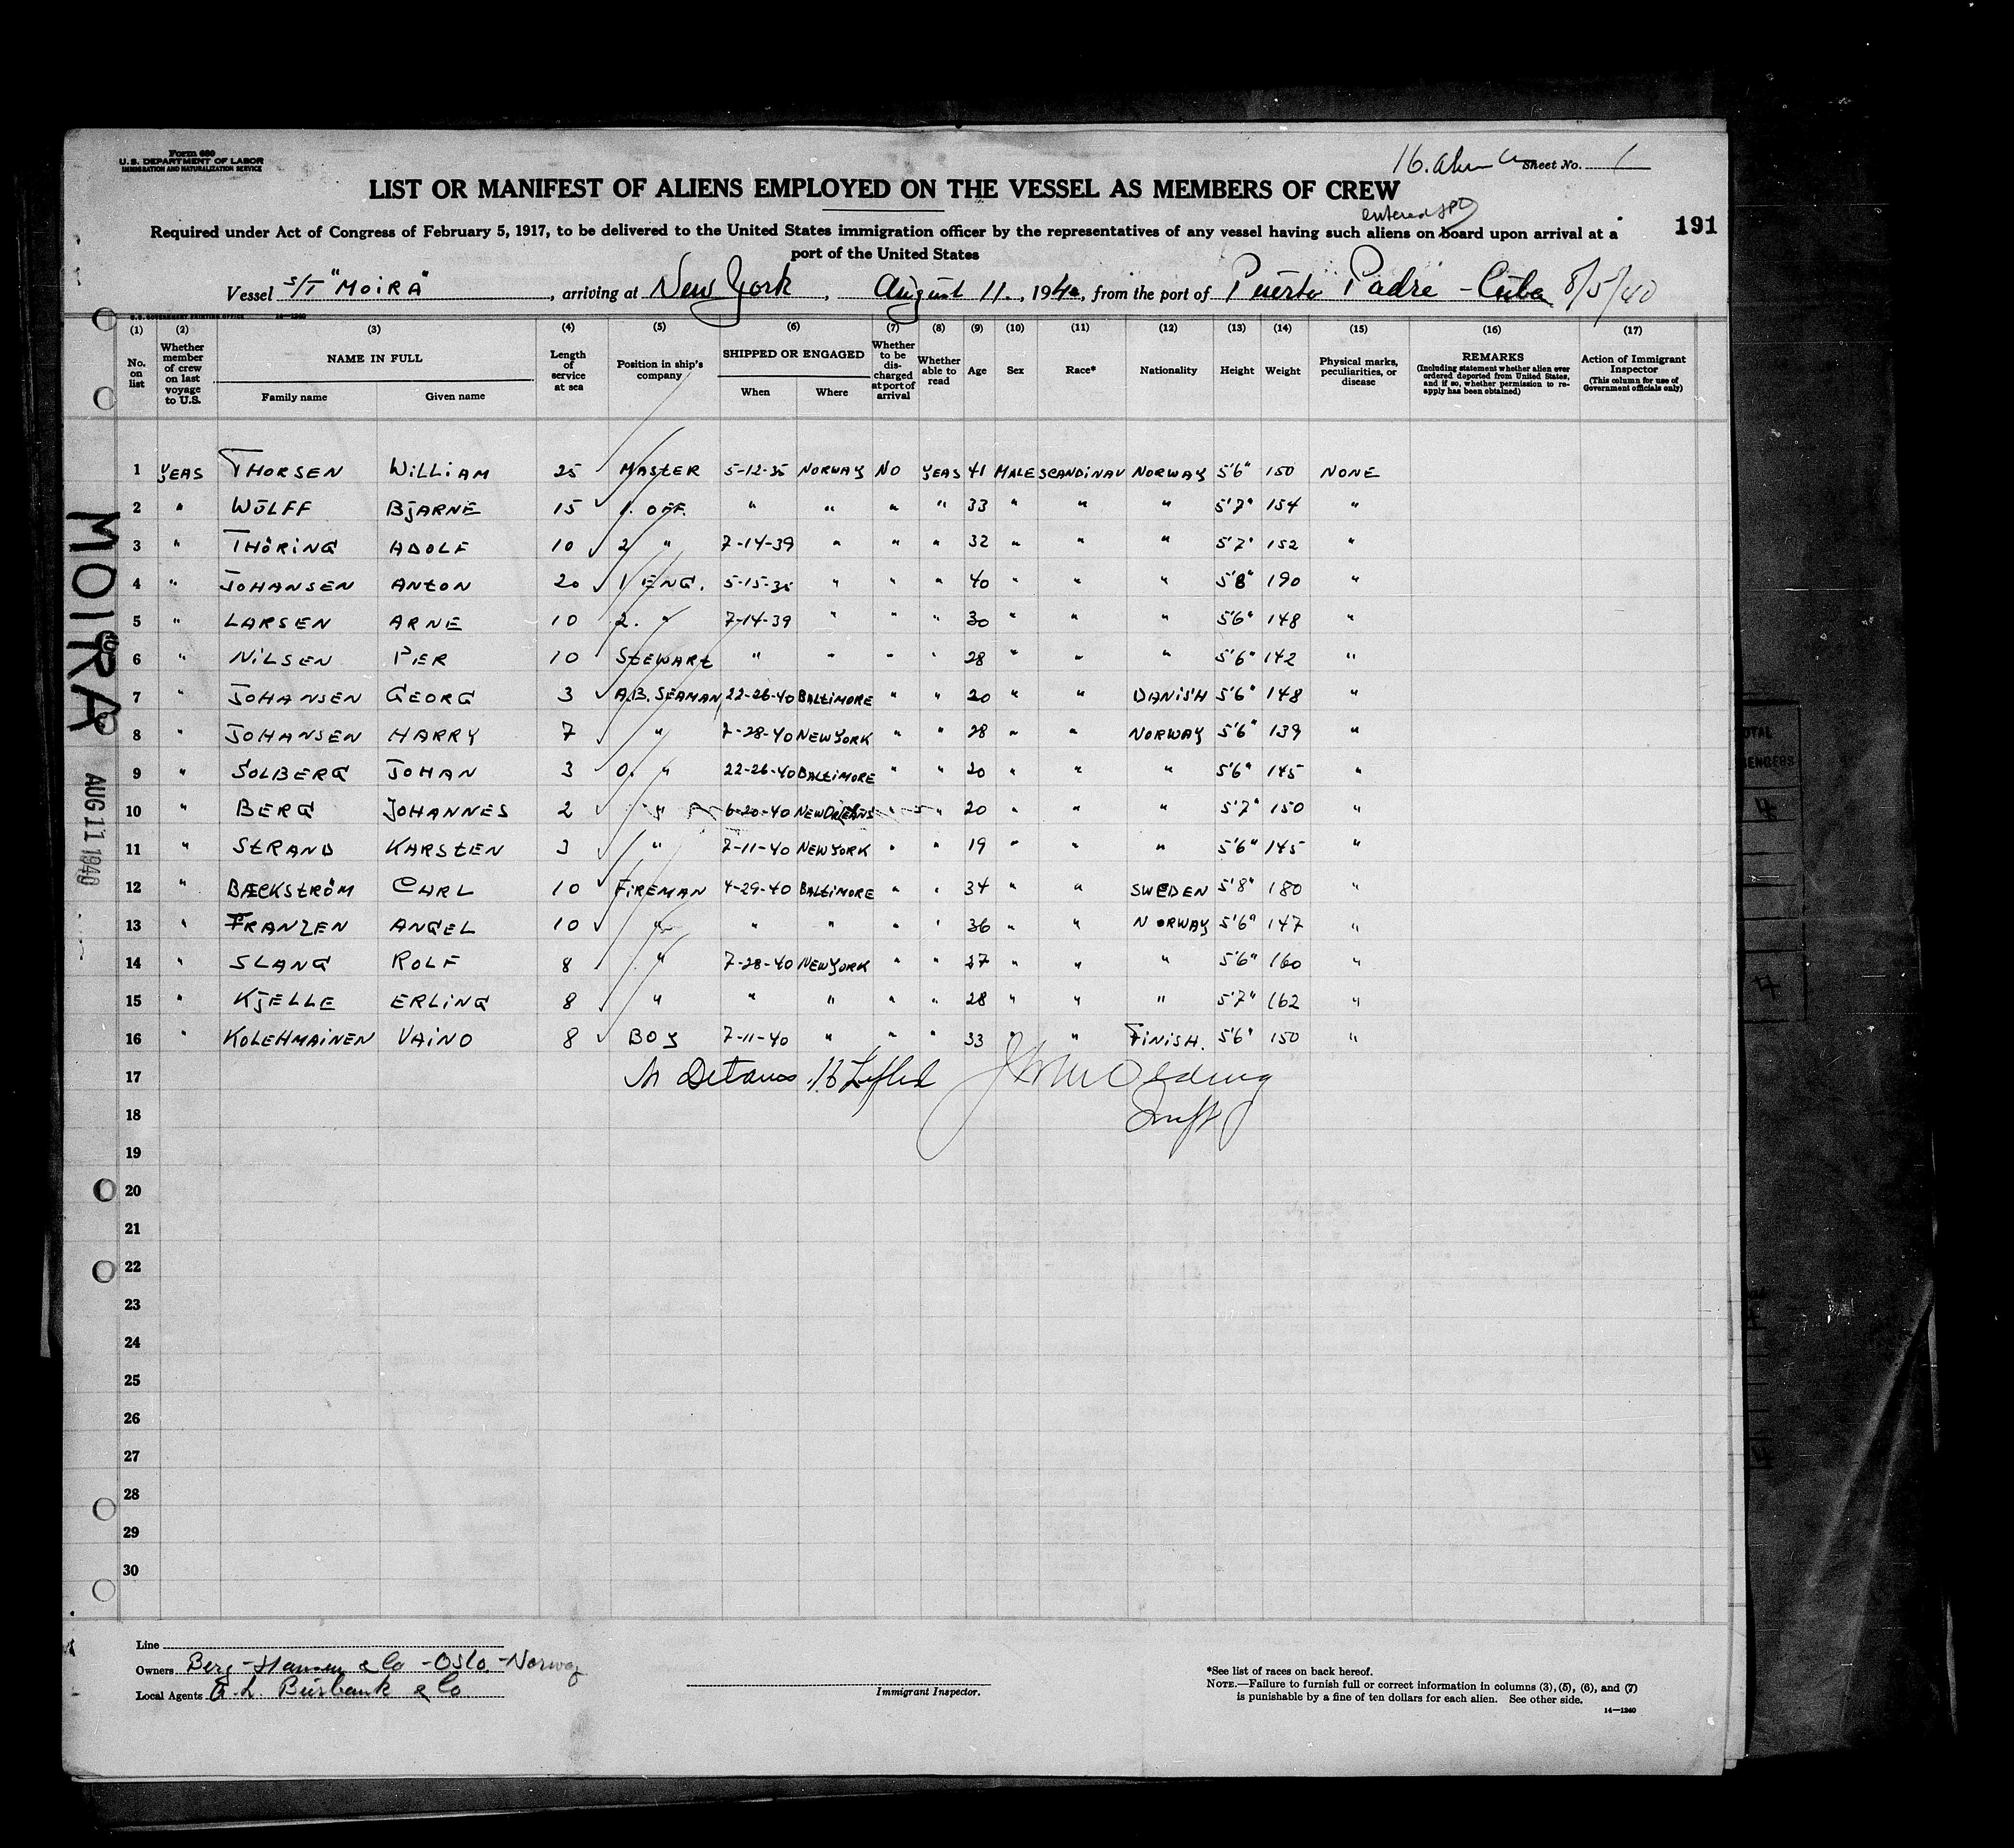 Form 680
U.S. DEPARTMENT OF LABOR
IMMIGRATION AND NATURALIZATION SERVICE
16. Sheet No. 1
LIST OR MANIFEST OF ALIENS EMPLOYED ON THE VESSEL AS MEMBERS OF CREW
entered
191
Required under Act of Congress of February 5, 1917, to be delivered to the United States immigration officer by the representatives of any vessel having such aliens on board upon arrival at a
port of the United States
Vessel S/T "MOIRA", arriving at New York, August 11., 1940, from the port of Puerto Padre - Cuba 8/5/40
U.S. GOVERNMENT PRINTING OFFICE 14—1240
(1) (2) (3) (4) (5) (6) (7) (8) (9) (10) (11) (12) (13) (14) (15) (16) (17)
No. on list
Whether member of crew on last voyage to U.S.
NAME IN FULL
Family name Given name
Length of service at sea
Position in ship's company
SHIPPED OR ENGAGED
When Where
Whether to be discharged at port of arrival
Whether able to read
Age
Sex
Race*
Nationality
Height
Weight
Physical marks, peculiarities, or disease
REMARKS
(Including statement whether alien ever ordered deported from United States, and if so, whether permission to re-apply has been obtained)
Action of Immigrant Inspector
(This column for use of Government officials only)
1 YEAS THORSEN WILLIAM 25 MASTER 5-12-35 NORWAY NO YEAS 41 MALE SCANDINAV NORWAY 5'6" 150 NONE
2 " WULFF BJARNE 15 1. OFF. " " " " 33 " " " 5'7" 154 "
3 " THÖRING ADOLF 10 2 " 7-14-39 " " " 32 " " " 5'7" 152 "
4 " JOHANSEN ANTON 20 1 ENG. 5-15-35 " " " 40 " " " 5'8" 190 "
5 " LARSEN ARNE 10 2. " 7-14-39 " " " 30 " " " 5'6" 148 "
6 " NILSEN PER 10 STEWART " " " " 28 " " " 5'6" 142 "
7 " JOHANSEN GEORG 3 A.B. SEAMAN 22-26-40 BALTIMORE " " 20 " " DANISH 5'6" 148 "
8 " JOHANSEN HARRY 7 " 7-28-40 NEW YORK " " 28 " " NORWAY 5'6" 139 "
9 " SOLBERG JOHAN 3 O. " 22-26-40 BALTIMORE " " 20 " " " 5'6" 145 "
10 " BERG JOHANNES 2 " 6-20-40 NEW ORLEANS " " 20 " " " 5'7" 150 "
11 " STRAND KARSTEN 3 " 7-11-40 NEW YORK " " 19 " " " 5'6" 145 "
12 " BÆCKSTRÖM CARL 10 FIREMAN 4-29-40 BALTIMORE " " 34 " " SWEDEN 5'8" 180 "
13 " FRANZEN ANGEL 10 " " " " " 36 " " NORWAY 5'6" 147 "
14 " SLANG ROLF 8 " 7-28-40 NEW YORK " " 27 " " " 5'6" 160 "
15 " KJELLE ERLING 8 " " " " " 28 " " " 5'7" 162 "
16 " KOLEHMAINEN VAINO 8 BOY 7-11-40 " " " 33 " " FINISH. 5'6" 150 "
17
18
19
20
21
22
23
24
25
26
27
28
29
30
MOIRA
AUG 11 1940
Line
Owners Berg-Hansen & Co - Oslo.-Norway
Local Agents A. L. Burbank & Co.
Immigrant Inspector.
*See list of races on back hereof.
NOTE.—Failure to furnish full or correct information in columns (3), (5), (6), and (7)
is punishable by a fine of ten dollars for each alien. See other side.
14—1240